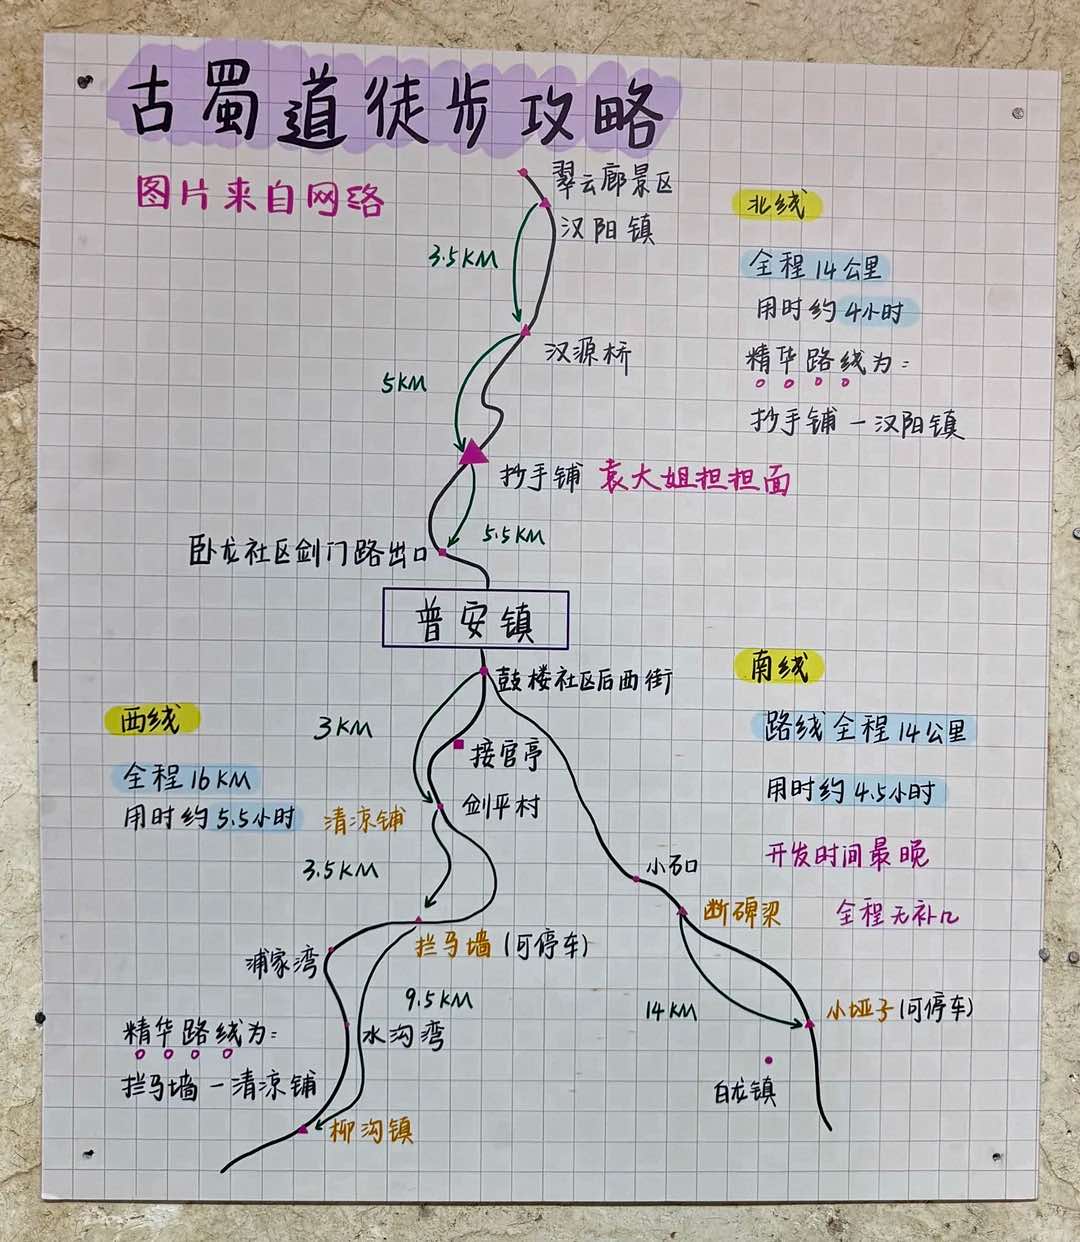 古蜀道徒步攻略
图片来自网络
翠云廊景区
汉阳镇
3.5KM
汉源桥
5KM
抄手铺 袁大姐担担面
5.5KM
卧龙社区剑门路出口
普安镇
北线
全程14公里
用时约4小时
精华路线为:
抄手铺-汉阳镇
鼓楼社区后西街
西线
全程16KM
用时约5.5小时
3KM
接官亭
剑平村
清凉铺
3.5KM
拦马墙(可停车)
浦家湾
9.5KM
水沟湾
精华路线为:
拦马墙-清凉铺
柳沟镇
南线
路线全程14公里
用时约4.5小时
开发时间最晚
全程无补几
小石口
断碑梁
14KM
小垭子(可停车)
白龙镇